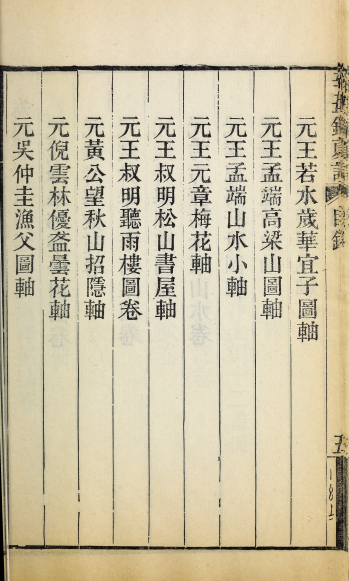 目錄
五
元王若水歲華宜子圖軸
元王孟端高梁山圖軸
元王孟端山水小軸
元王元章梅花軸
元王叔明松山書屋軸
元王叔明聽雨樓圖卷
元黃公望秋山招隱軸
元倪雲林優盋曇花軸
元吳仲圭漁父圖軸